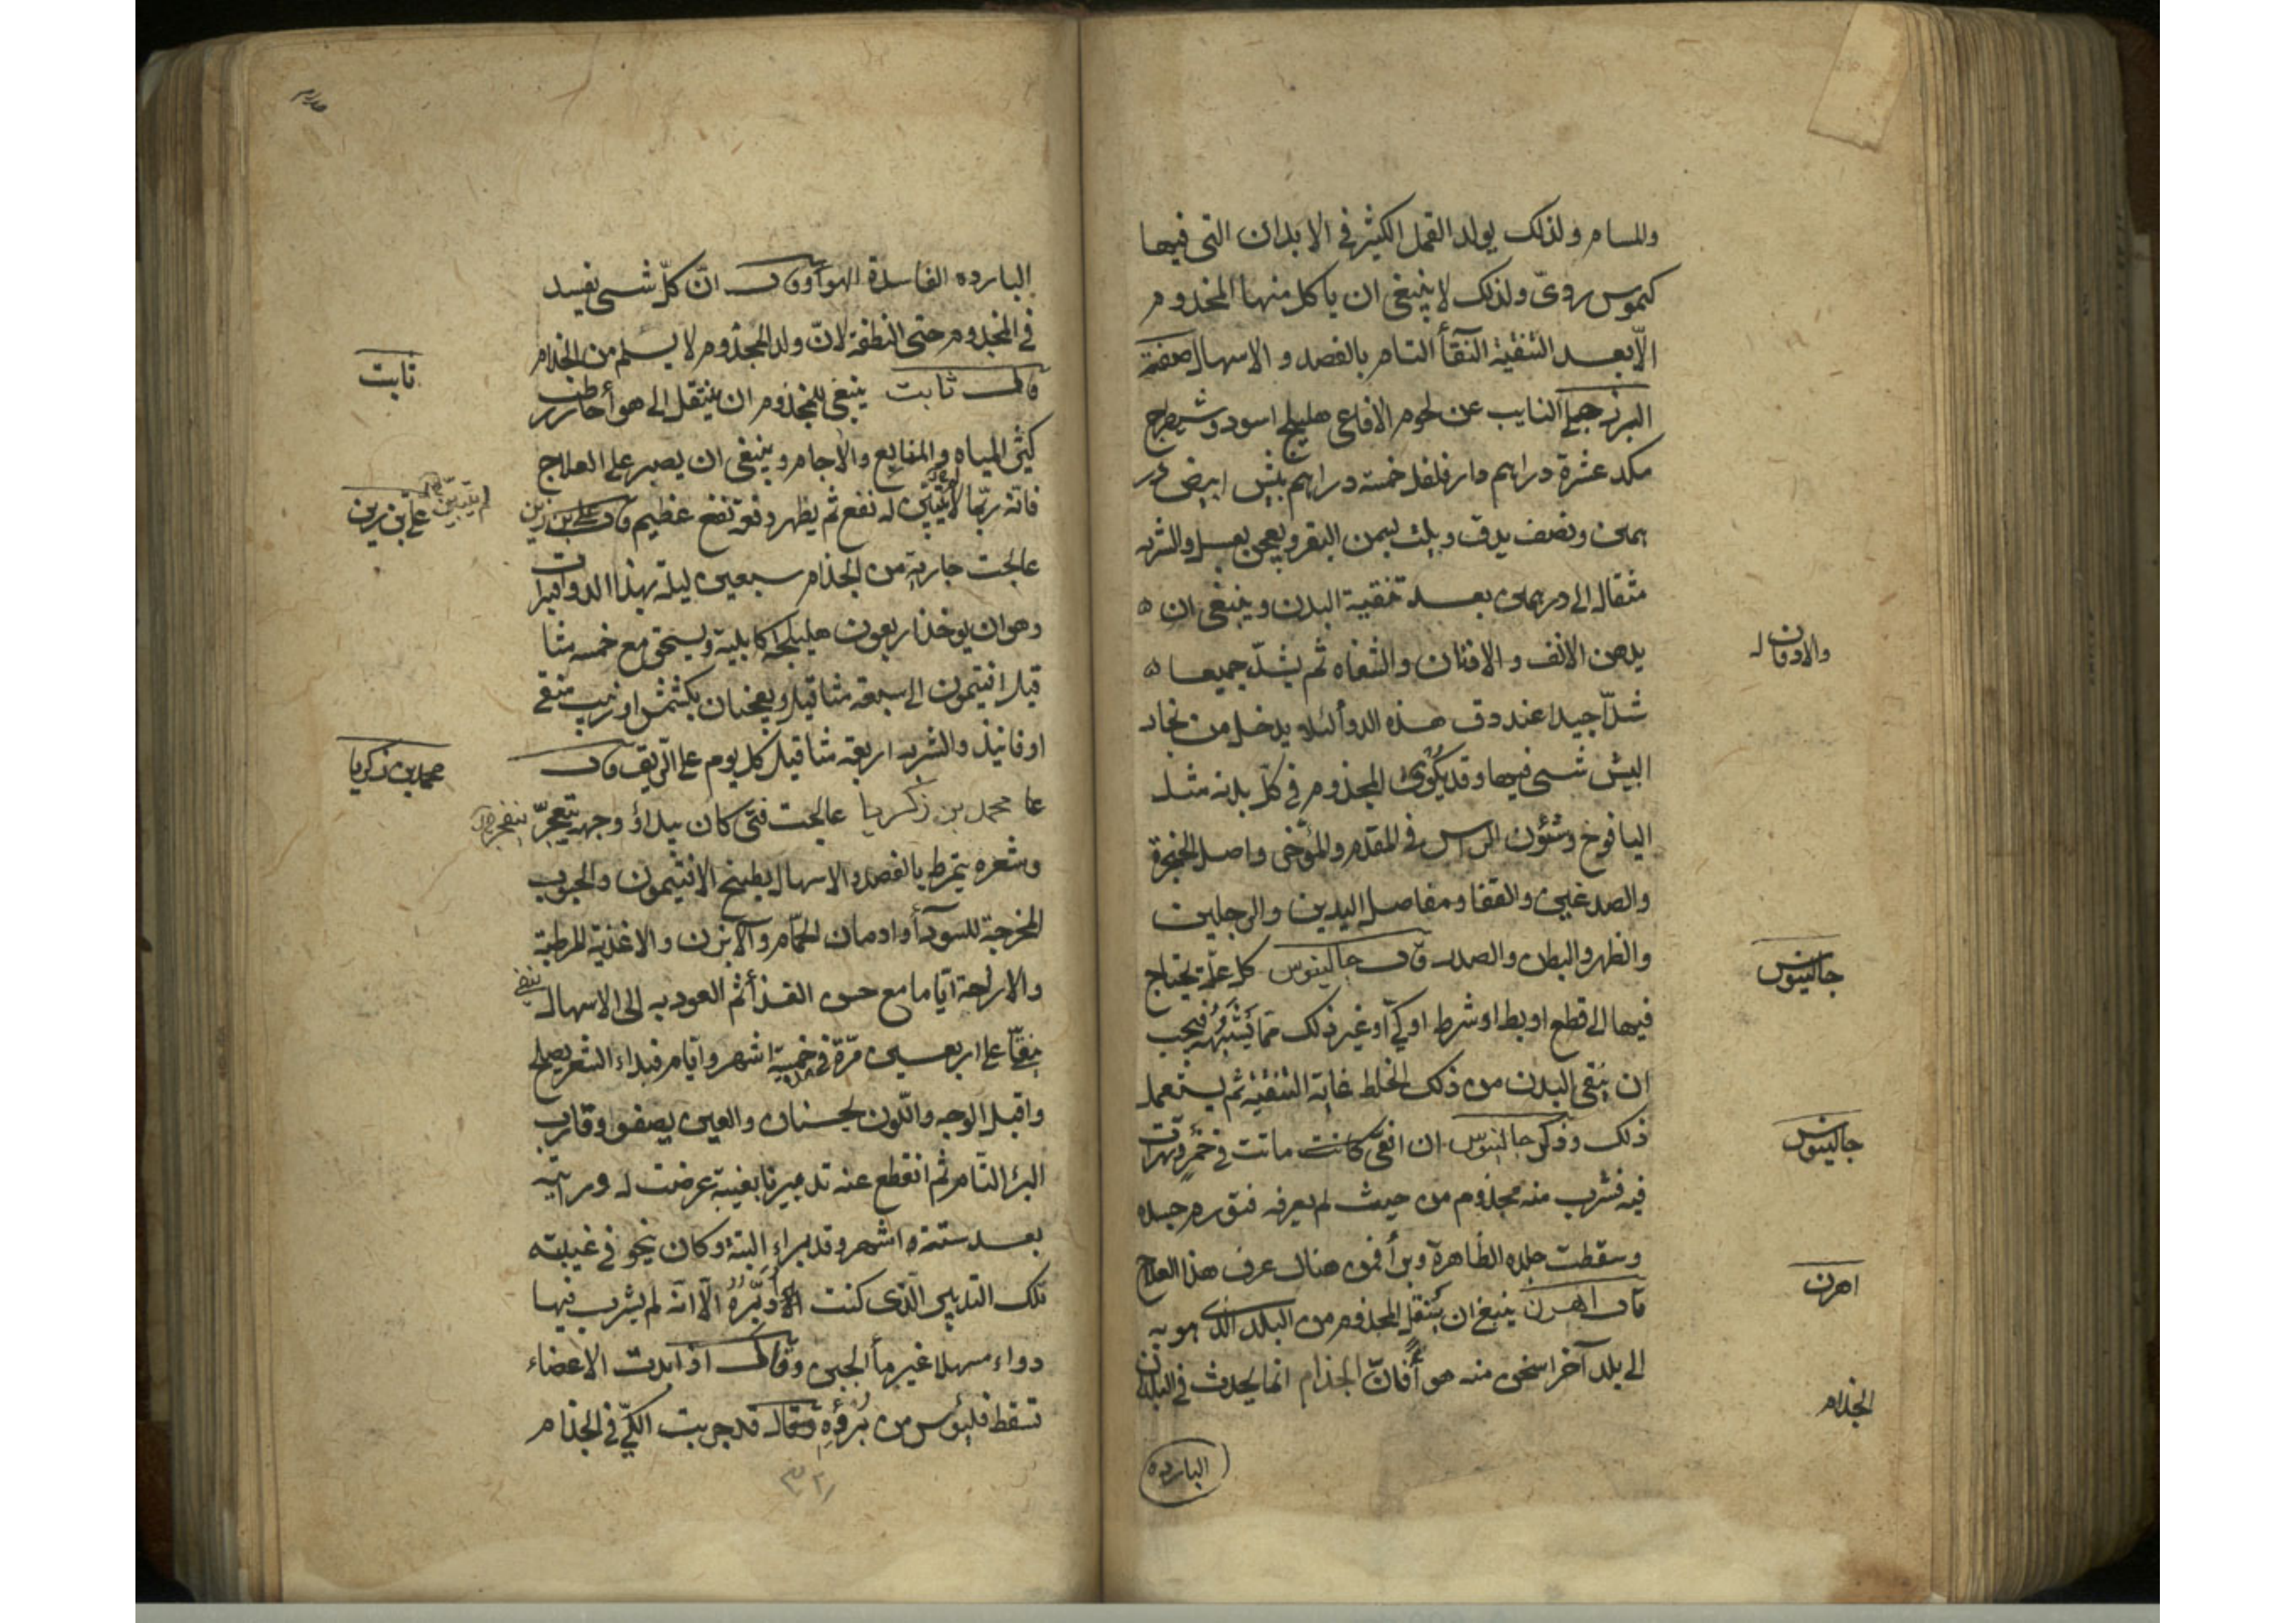 والمسام ولذلك يولد القمل الكثير في الابدان التي فيها
كيموس ردىّ ولذلك لا ينبغي ان ياكل منها المجذوم
الّا بعد التنقية النقأ التام بالفصد و الاسهال صفة
البزرجلي النايب عن لحوم الافاعي هليلج اسود وشيطرج
مكد عشرة دراهم دارفلفل خمسة دراهم بيش ابيض
ونصف يدق ويلت بسمن البقر ويعجن بعسل والشربه
مثقال الى درهمين بعد تنقية البدن وينبغي ان
يدهن الانف و الاذنان والشفاه ثم يشدّ جميعا
والاذنان
شدّا جيدا عند دق هذه الدوأ لئلا يدخل من بخار
البيش شيى فيها وقد يكوى المجذوم في كلّ بدنه مثل
اليافوخ وشئون الراس في المقدم والمؤخر واصل الحنجرة
والصدغين والقفا ومفاصل اليدين والرجلين
والظهر والبطن والصدر قال جالينوس كل علّة يحتاج
جالينوس
فيها الى قطع او بط او شرط او كيّ أو غير ذلك مما يشبهه فيجب
ان ينقي البدن من ذلك الخلط غاية التنقية ثم يستعمل
ذلك وذكر جالينوس ان افعى كانت ماتت في خمر وتهرات
جالينوس
فيه فشرب منه مجذوم من حيث لم يعرفه فتورم جسده
وسقطت جلده الظاهرة وبرأ فمن هناك عرف هذا العلاج
قال اهرن ينبغ ان ينقل المجذوم من البلد الذى هو به
اهرن
الى بلد آخر اسخن منه هوأ فانّ الجذام انما يحدث في البلدان
الجذام
البارده
البارده الفاسدة الهوآ وقال انّ كلّ شيى يفسد
في المجذوم حتى النطفة لانّ ولد المجذوم لا يسلم من الجذام
قال ثابت ينبغي للمجذوم ان ينتقل الى هوأ حار رطب
ثابت
كثير المياه والمنابع والاجام وينبغي ان يصبر على العلاج
فانه ربّما لا يتبيّن له نفع ثم يظهر دفعة نفع عظيم قال علي بن زين
لم يتبيّن
علي بن زين
عالجت جارية من الجذام سبعين ليلة بهذا الدوا فبرات
وهو ان يوخذ اربعون هليلجه كابلية ويسحق مع خمسه مثا
قيل افتيمون الى سبعة مثاقيل ويعجنان بكشمش او زبيب منقى
او فانيذ والشربه اربعة مثاقيل كل يوم على الريق قال
محمد بن زكريا
محمد بن زكريا عالجت فتى كان يبدأ وجهه يتعجّر
وشعره يتمرط بالفصد والاسهال بطبيخ الافتيمون والحبوب
المخرجة للسودآ وادمان الحمّام والآبزن والاغذية المرطبة
والاراحة ايّاما مع حسن الغذأ ثم العود به الى الاسهال
على اربعين مرّة في خمسة اشهر وايّام فبداء الشعر يصلح
واقبل الوجه واللّون يحسنان والعين يصفو وقارب
البرء التام ثم انقطع عنه تدبيرنا بغيبة عرضت له ورايته
بعد ستة اشهر وقد براء البتة وكان ينحو في غيبته
تلك التدبير الّذى كنت ادبّره الّا انه لم يشرب فيها
دواء مسهلا غير مأ الجبن وقال اذا بدت الاعضاء
تسقط فليؤس من برؤه وقال قد جربت الكيّ في الجذام